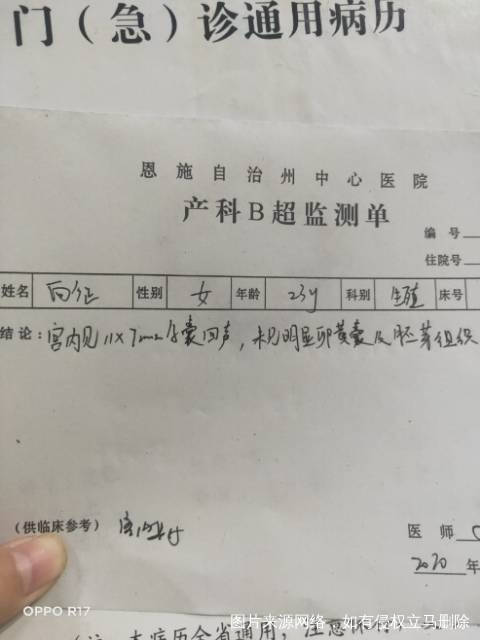 门（急）诊通用病历
恩施自治州中心医院
产科B超监测单
编号
住院号
姓名 向征 性别 女 年龄 23y 科别 生殖 床号
结论：宫内见11×7mm孕囊回声，未见明显卵黄囊及胚芽组织
（供临床参考） 宫内早孕
医师
2020年
本病历全省通用
OPPO R17
图片来源网络，如有侵权立马删除